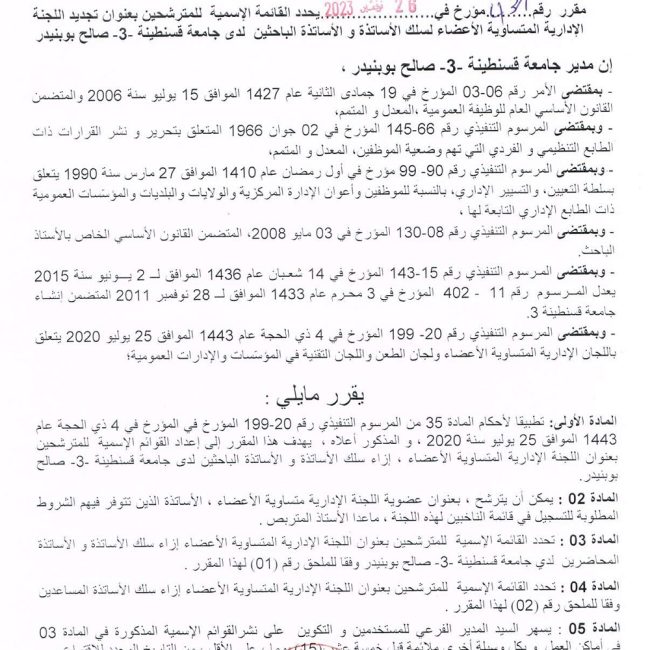 مقرر رقم مؤرخ في 26 نوفمبر 2023 يحدد القائمة الإسمية للمترشحين بعنوان تجديد اللجنة
الإدارية المتساوية الأعضاء لسلك الأساتذة و الأساتذة الباحثين لدى جامعة قسنطينة -3- صالح بوبنيدر
إن مدير جامعة قسنطينة -3- صالح بوبنيدر ،
- بمقتضى الأمر رقم 06-03 المؤرخ في 19 جمادى الثانية عام 1427 الموافق 15 يوليو سنة 2006 والمتضمن
القانون الأساسي العام للوظيفة العمومية ،المعدل و المتمم،
- وبمقتضى المرسوم التنفيذي رقم 66-145 المؤرخ في 02 جوان 1966 المتعلق بتحرير و نشر القرارات ذات
الطابع التنظيمي و الفردي التي تهم وضعية الموظفين، المعدل و المتمم،
- وبمقتضى المرسوم التنفيذي رقم 90- 99 مؤرخ في أول رمضان عام 1410 الموافق 27 مارس سنة 1990 يتعلق
بسلطة التعيين، والتسيير الإداري، بالنسبة للموظفين وأعوان الإدارة المركزية والولايات والبلديات والمؤسّسات العمومية
ذات الطابع الإداري التابعة لها ،
- وبمقتضى المرسوم التنفيذي رقم 08-130 المؤرخ في 03 مايو 2008، المتضمن القانون الأساسي الخاص بالأستاذ
الباحث.
- وبمقتضى المرسوم التنفيذي رقم 15-143 المؤرخ في 14 شعبان عام 1436 الموافق لـ 2 يـونيو سنة 2015
يعدل المرسوم رقم 11 - 402 المؤرخ في 3 محرم عام 1433 الموافق لـ 28 نوفمبر 2011 المتضمن إنشاء
جامعة قسنطينة 3.
- وبمقتضى المرسوم التنفيذي رقم 20- 199 المؤرخ في 4 ذي الحجة عام 1443 الموافق 25 يوليو 2020 يتعلق
باللجان الإدارية المتساوية الأعضاء ولجان الطعن واللجان التقنية في المؤسّسات والإدارات العمومية؛
يقرر مايلي :
المادة الأولى: تطبيقا لأحكام المادة 35 من المرسوم التنفيذي رقم 20-199 المؤرخ في المؤرخ في 4 ذي الحجة عام
1443 الموافق 25 يوليو سنة 2020 ، و المذكور أعلاه ، يهدف هذا المقرر إلى إعداد القوائم الإسمية للمترشحين
بعنوان اللجنة الإدارية المتساوية الأعضاء ، إزاء سلك الأساتذة و الأساتذة الباحثين لدى جامعة قسنطينة -3- صالح
بوبنيدر.
المادة 02 : يمكن أن يترشح ، بعنوان عضوية اللجنة الإدارية متساوية الأعضاء ، الأساتذة الذين تتوفر فيهم الشروط
المطلوبة للتسجيل في قائمة الناخبين لهذه اللجنة ، ماعدا الأستاذ المتربص .
المادة 03 : تحدد القائمة الإسمية للمترشحين بعنوان اللجنة الإدارية المتساوية الأعضاء إزاء سلك الأساتذة و الأساتذة
المحاضرين لدى جامعة قسنطينة -3- صالح بوبنيدر وفقا للملحق رقم (01) لهذا المقرر .
المادة 04 : تحدد القائمة الإسمية للمترشحين بعنوان اللجنة الإدارية المتساوية الأعضاء إزاء سلك الأساتذة المساعدين
وفقا للملحق رقم (02) لهذا المقرر .
المادة 05 : يسهر السيد المدير الفرعي للمستخدمين و التكوين على نشرالقوائم الإسمية المذكورة في المادة 03
في أماكن العمل و بكل وسيلة أخرى ملائمة قبل خمسة عشر (15)